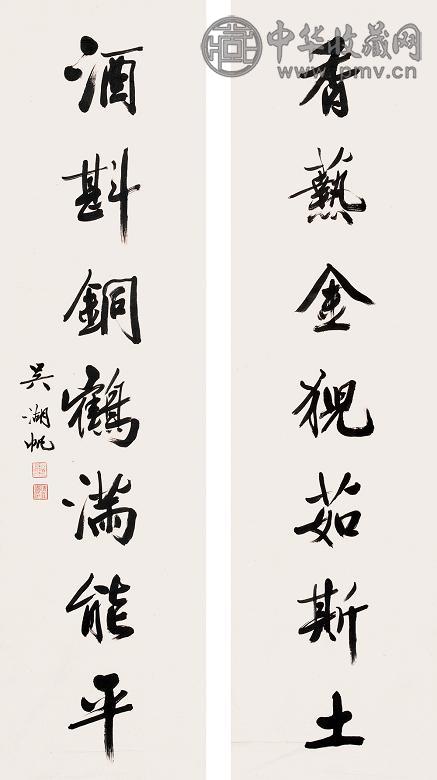 中华收藏网
www.pmv.cn
香爇金猊茹斯土
酒斟銅鶴滿能平
吴湖帆